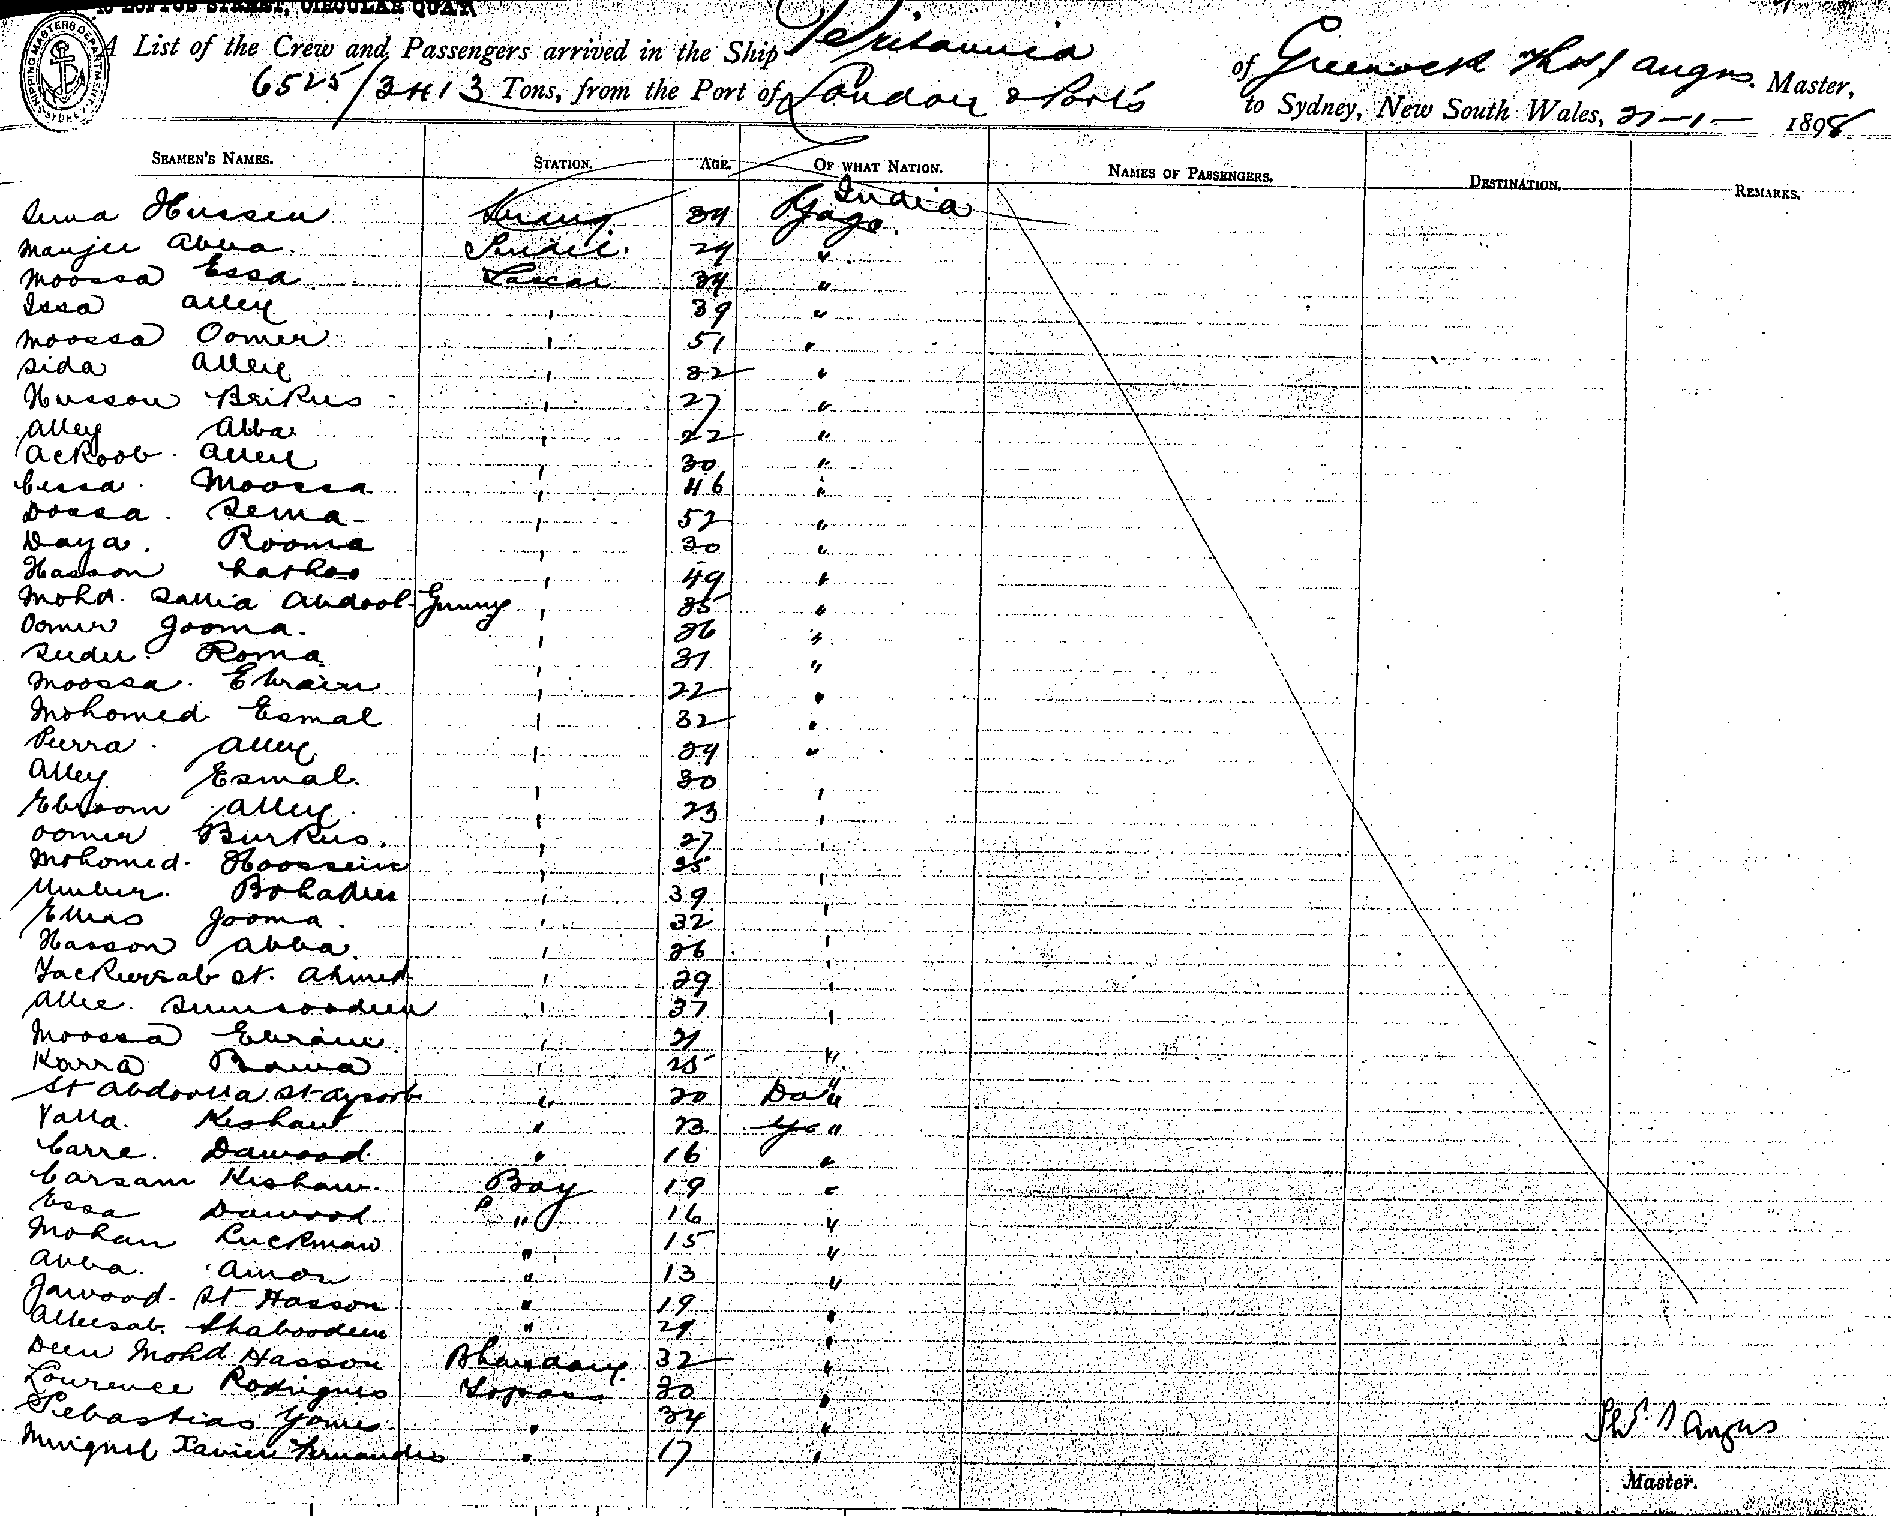 15 LOFTUS STREET, CIRCULAR QUAY
SHIPPING MASTERS DEPARTMENT SYDNEY
A List of the Crew and Passengers arrived in the Ship Britannia of Greenock Thos S Angus. Master,
6525/3413 Tons, from the Port of London & Ports to Sydney, New South Wales, 21-1- 1898
SEAMEN'S NAMES. STATION. AGE. OF WHAT NATION. NAMES OF PASSENGERS. DESTINATION. REMARKS.
Hussen 34 India
Abba. 24 "
Moossa Essa Lascar 34 "
Issa Alley ' 39 "
Moossa Oomer ' 51 "
Sida Alley ' 32 "
Husson Brikus ' 27 "
Alley Abba ' 22 "
Ackoob. Alley ' 30 "
Moossa ' 46 "
Dossa. Sema ' 52 "
Daya. Rooma ' 30 "
Hasson ' 49 "
Mohd. Abdool Gunny ' 35 "
Oomer Jooma. ' 26 "
Roma ' 31 "
Moossa. Ebraim ' 22 "
Mohomed Esmal ' 32 "
Peerra. Alley ' 24 "
Alley Esmal. ' 30 '
Ebroom Alley ' 23 '
Oomer Burkus. ' 27 '
Mohomed. Hoossein ' 25 '
Bohadur ' 39 '
Ellias Jooma. ' 32 '
Hasson Abba. ' 26 '
St. Ahmed ' 29 '
Allie. ' 37 '
Moossa Ebraim ' 21 "
Karra Bawa ' 25 "
St Abdoolla St " 20 Do "
Valla. Keshaw " 23 "
Carre. Dawood " 16 "
Carsam Keshaw. Boy 19 "
Essa Dawood " 16 "
Mohan Luckman " 15 "
Abba. Amor " 13 "
Jawood. St Hasson " 19 "
Alleesab. Shaboodeen " 29 "
Deen Mohd Hasson Bhandary. 32 "
Lourence Rodrigues Topass 30 "
Sebastiao Gomes " 34 "
Xavier Fernandes " 17 "
Thos. S Angus
Master.